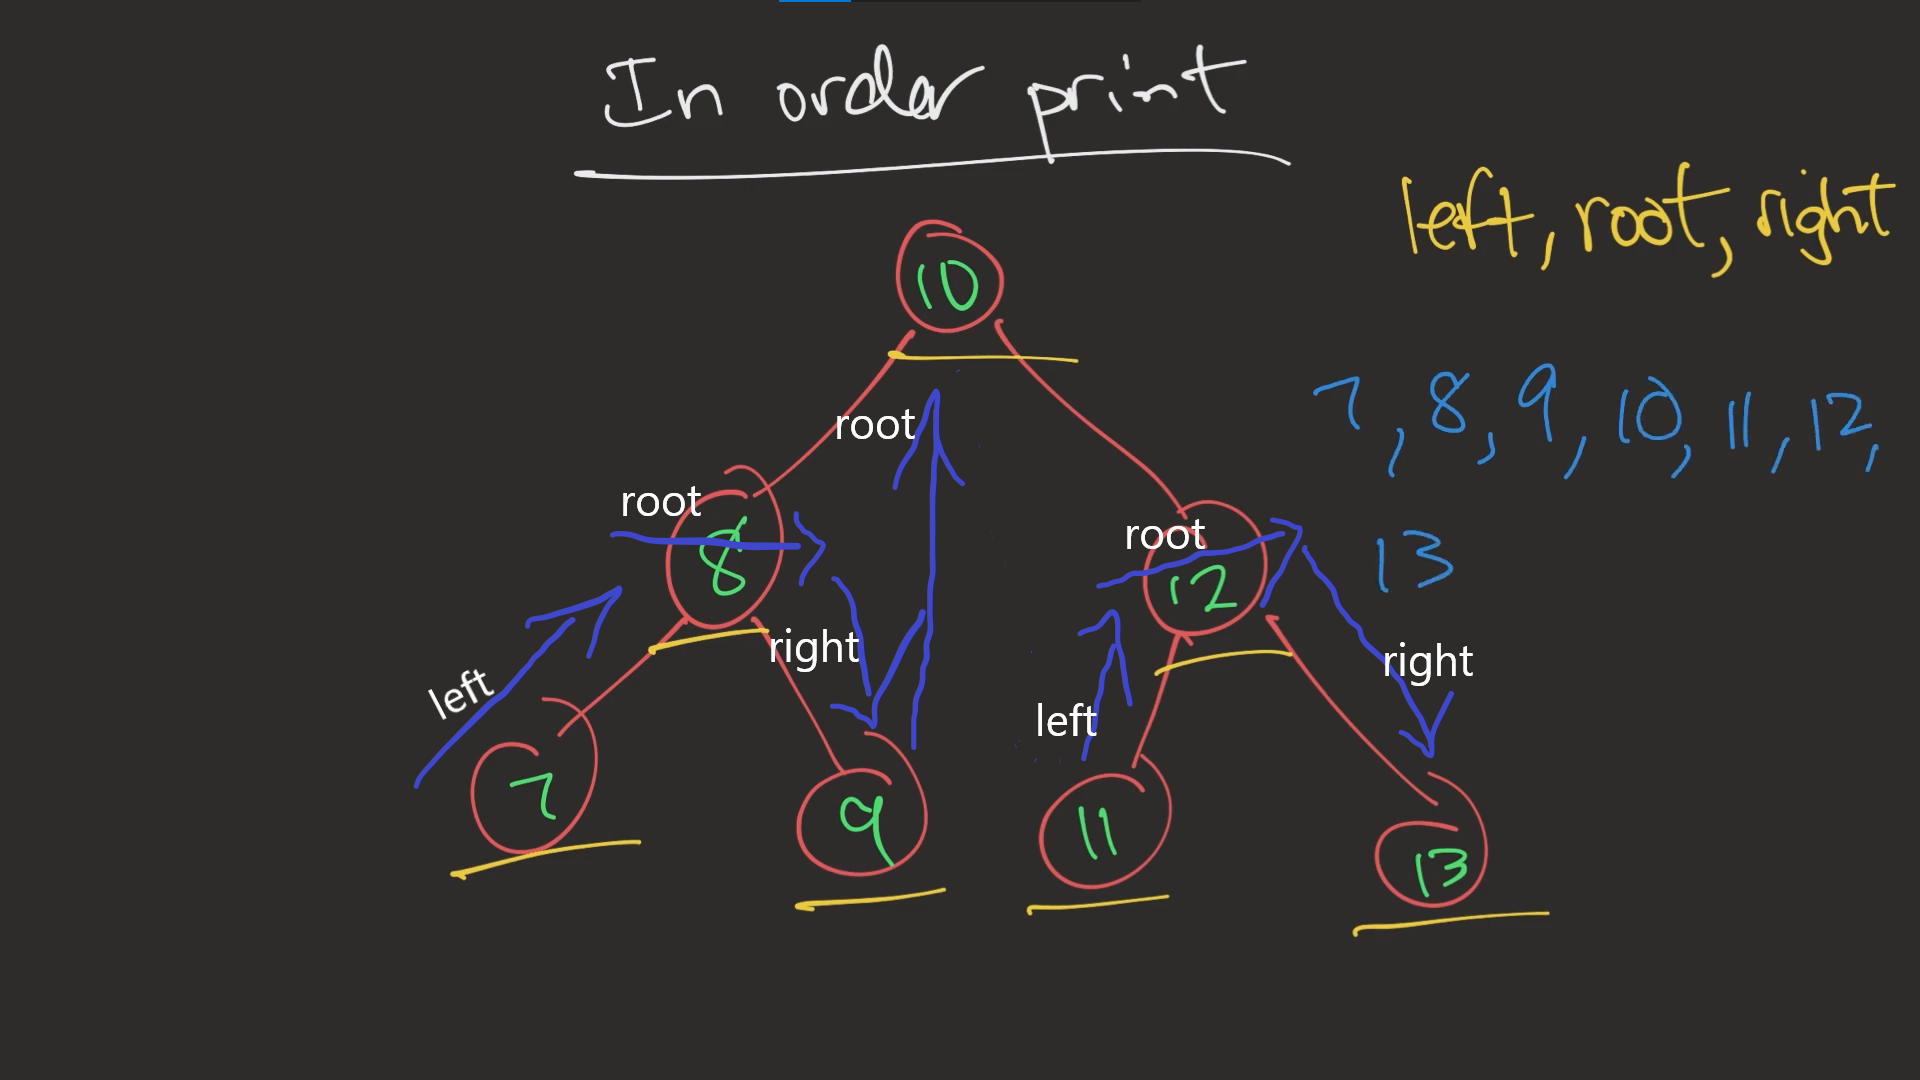 In order print
left, root, right
10
7, 8, 9, 10, 11, 12,
13
root
root
8
root
12
left
right
left
right
7
9
11
13